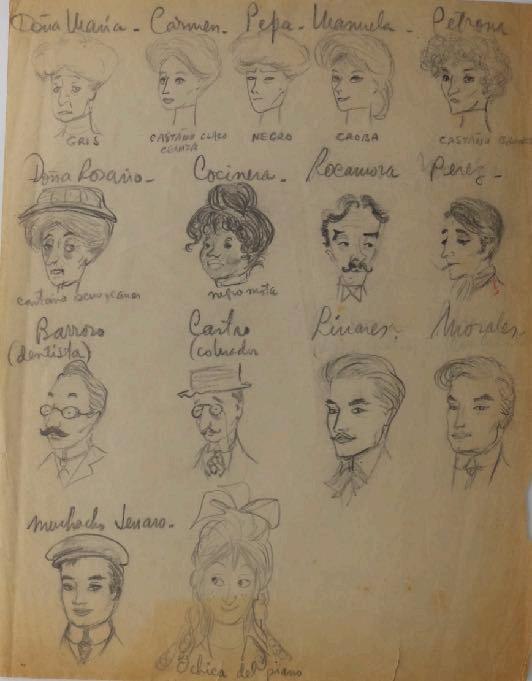 Doña María - Carmen - Pepa - Manuela - Petrona
GRIS
CASTAÑO CLARO
CENIZA
NEGRO
CAOBA
CASTAÑO
Doña Rosario - Cocinera - Rocamora Perez -
castaño
negro mota
Barroso
(dentista)
Castro
(cobrador
Linares - Morales -
muchacho Jenaro -
chica del piano